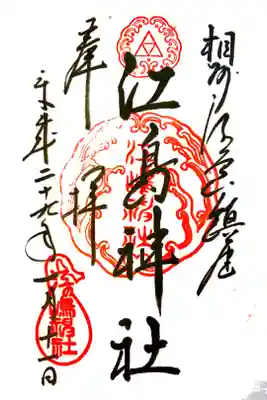 相州江之島鎮座
奉拝
江島神社
平成二十九年十一月二十一日
江島神社